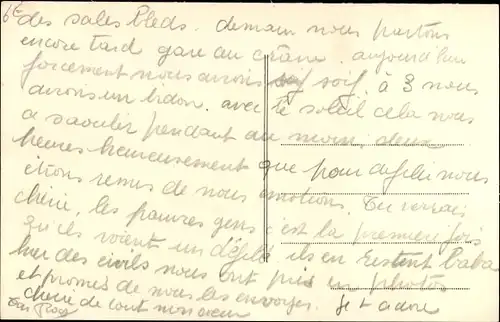 des sales bleds. demain nous partons
encore tard gare au crâne. aujourd'hui
forcement nous avions soif. à 3 nous
avions un bidon. avec le soleil cela nous
a saouler pendant au moins deux
heures heureusement que pour défiler nous
étions remis de nos émotions. Tu verrais
cherie, les pauvres gens c'est la première fois
qu'ils voient un défilé ils en restent baba
des civils nous ont pris en photos
et promis de nous les envoyer. Je t'adore
cherie de tout mon cœur